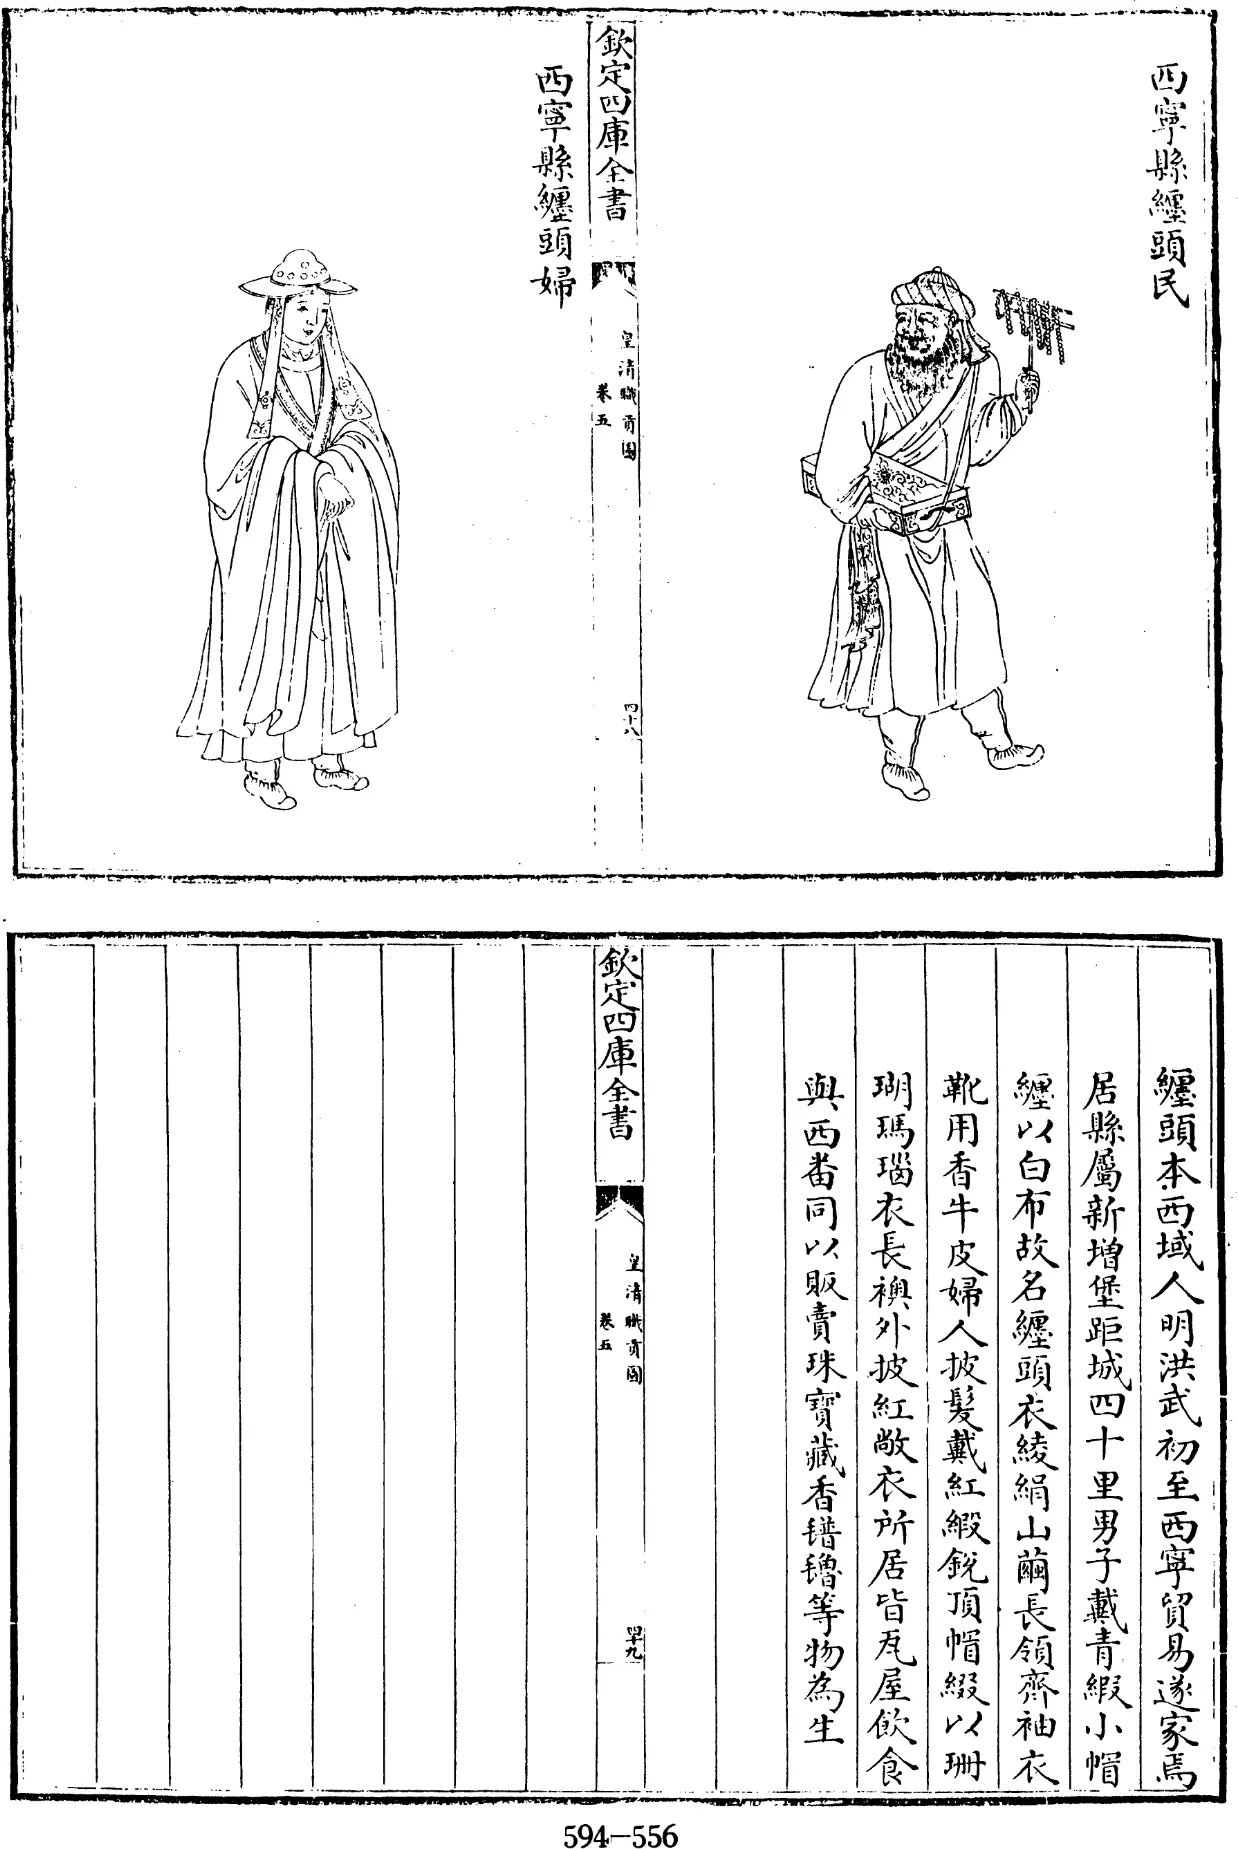 西寧縣纏頭民
欽定四庫全書
皇清職貢圖
卷五
四十八
西寧縣纏頭婦
纏頭本西域人明洪武初至西寧貿易遂家焉
居縣屬新增堡距城四十里男子戴青緞小帽
纏以白布故名纏頭衣綾絹山繭長領齊袖衣
靴用香牛皮婦人披髮戴紅緞銳頂帽綴以珊
瑚瑪瑙衣長襖外披紅敞衣所居皆瓦屋飲食
與西番同以販賣珠寶藏香氆氇等物為生
欽定四庫全書
皇清職貢圖
卷五
四十九
594-556